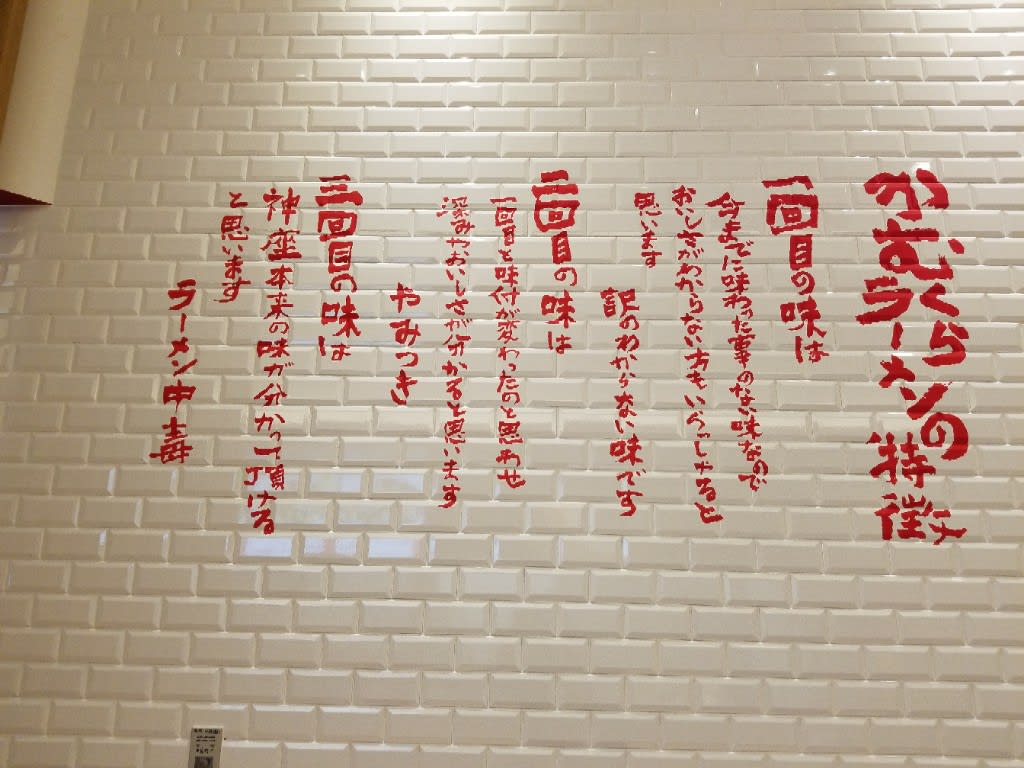 かむくら
ラーメンの
特徴
一回目の味は
今までに味わった事のない味なので
おいしさがわからない方もいらっしゃると
思います
訳のわからない味です
二回目の味は
一回目と味付が変わったのと思わせ
深みやおいしさが分かると思います
やみつき
三回目の味は
神座本来の味が分かって頂ける
と思います
ラーメン中毒